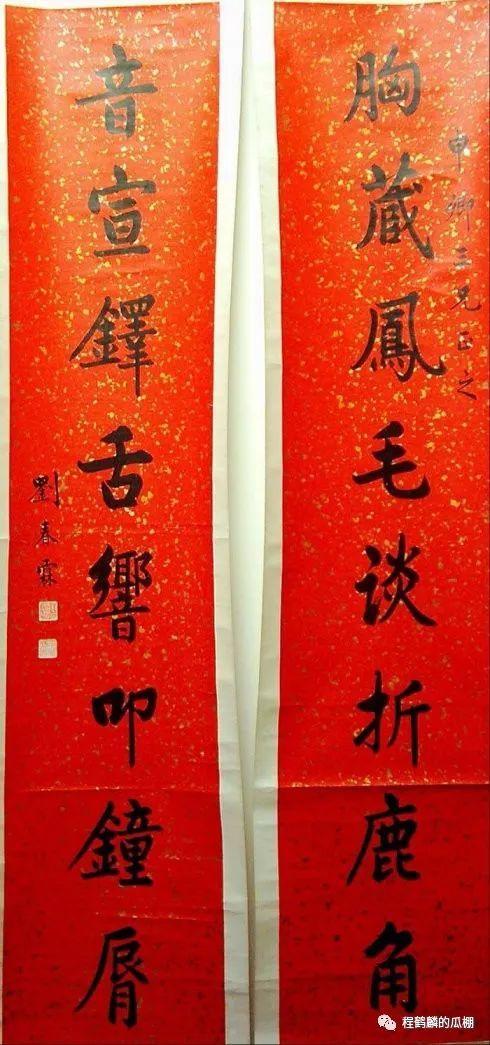 胸藏鳳毛谈折鹿角
申卿三兄正之
音宣鐸舌響叩鐘脣
劉春霖
程鹤麟的瓜棚